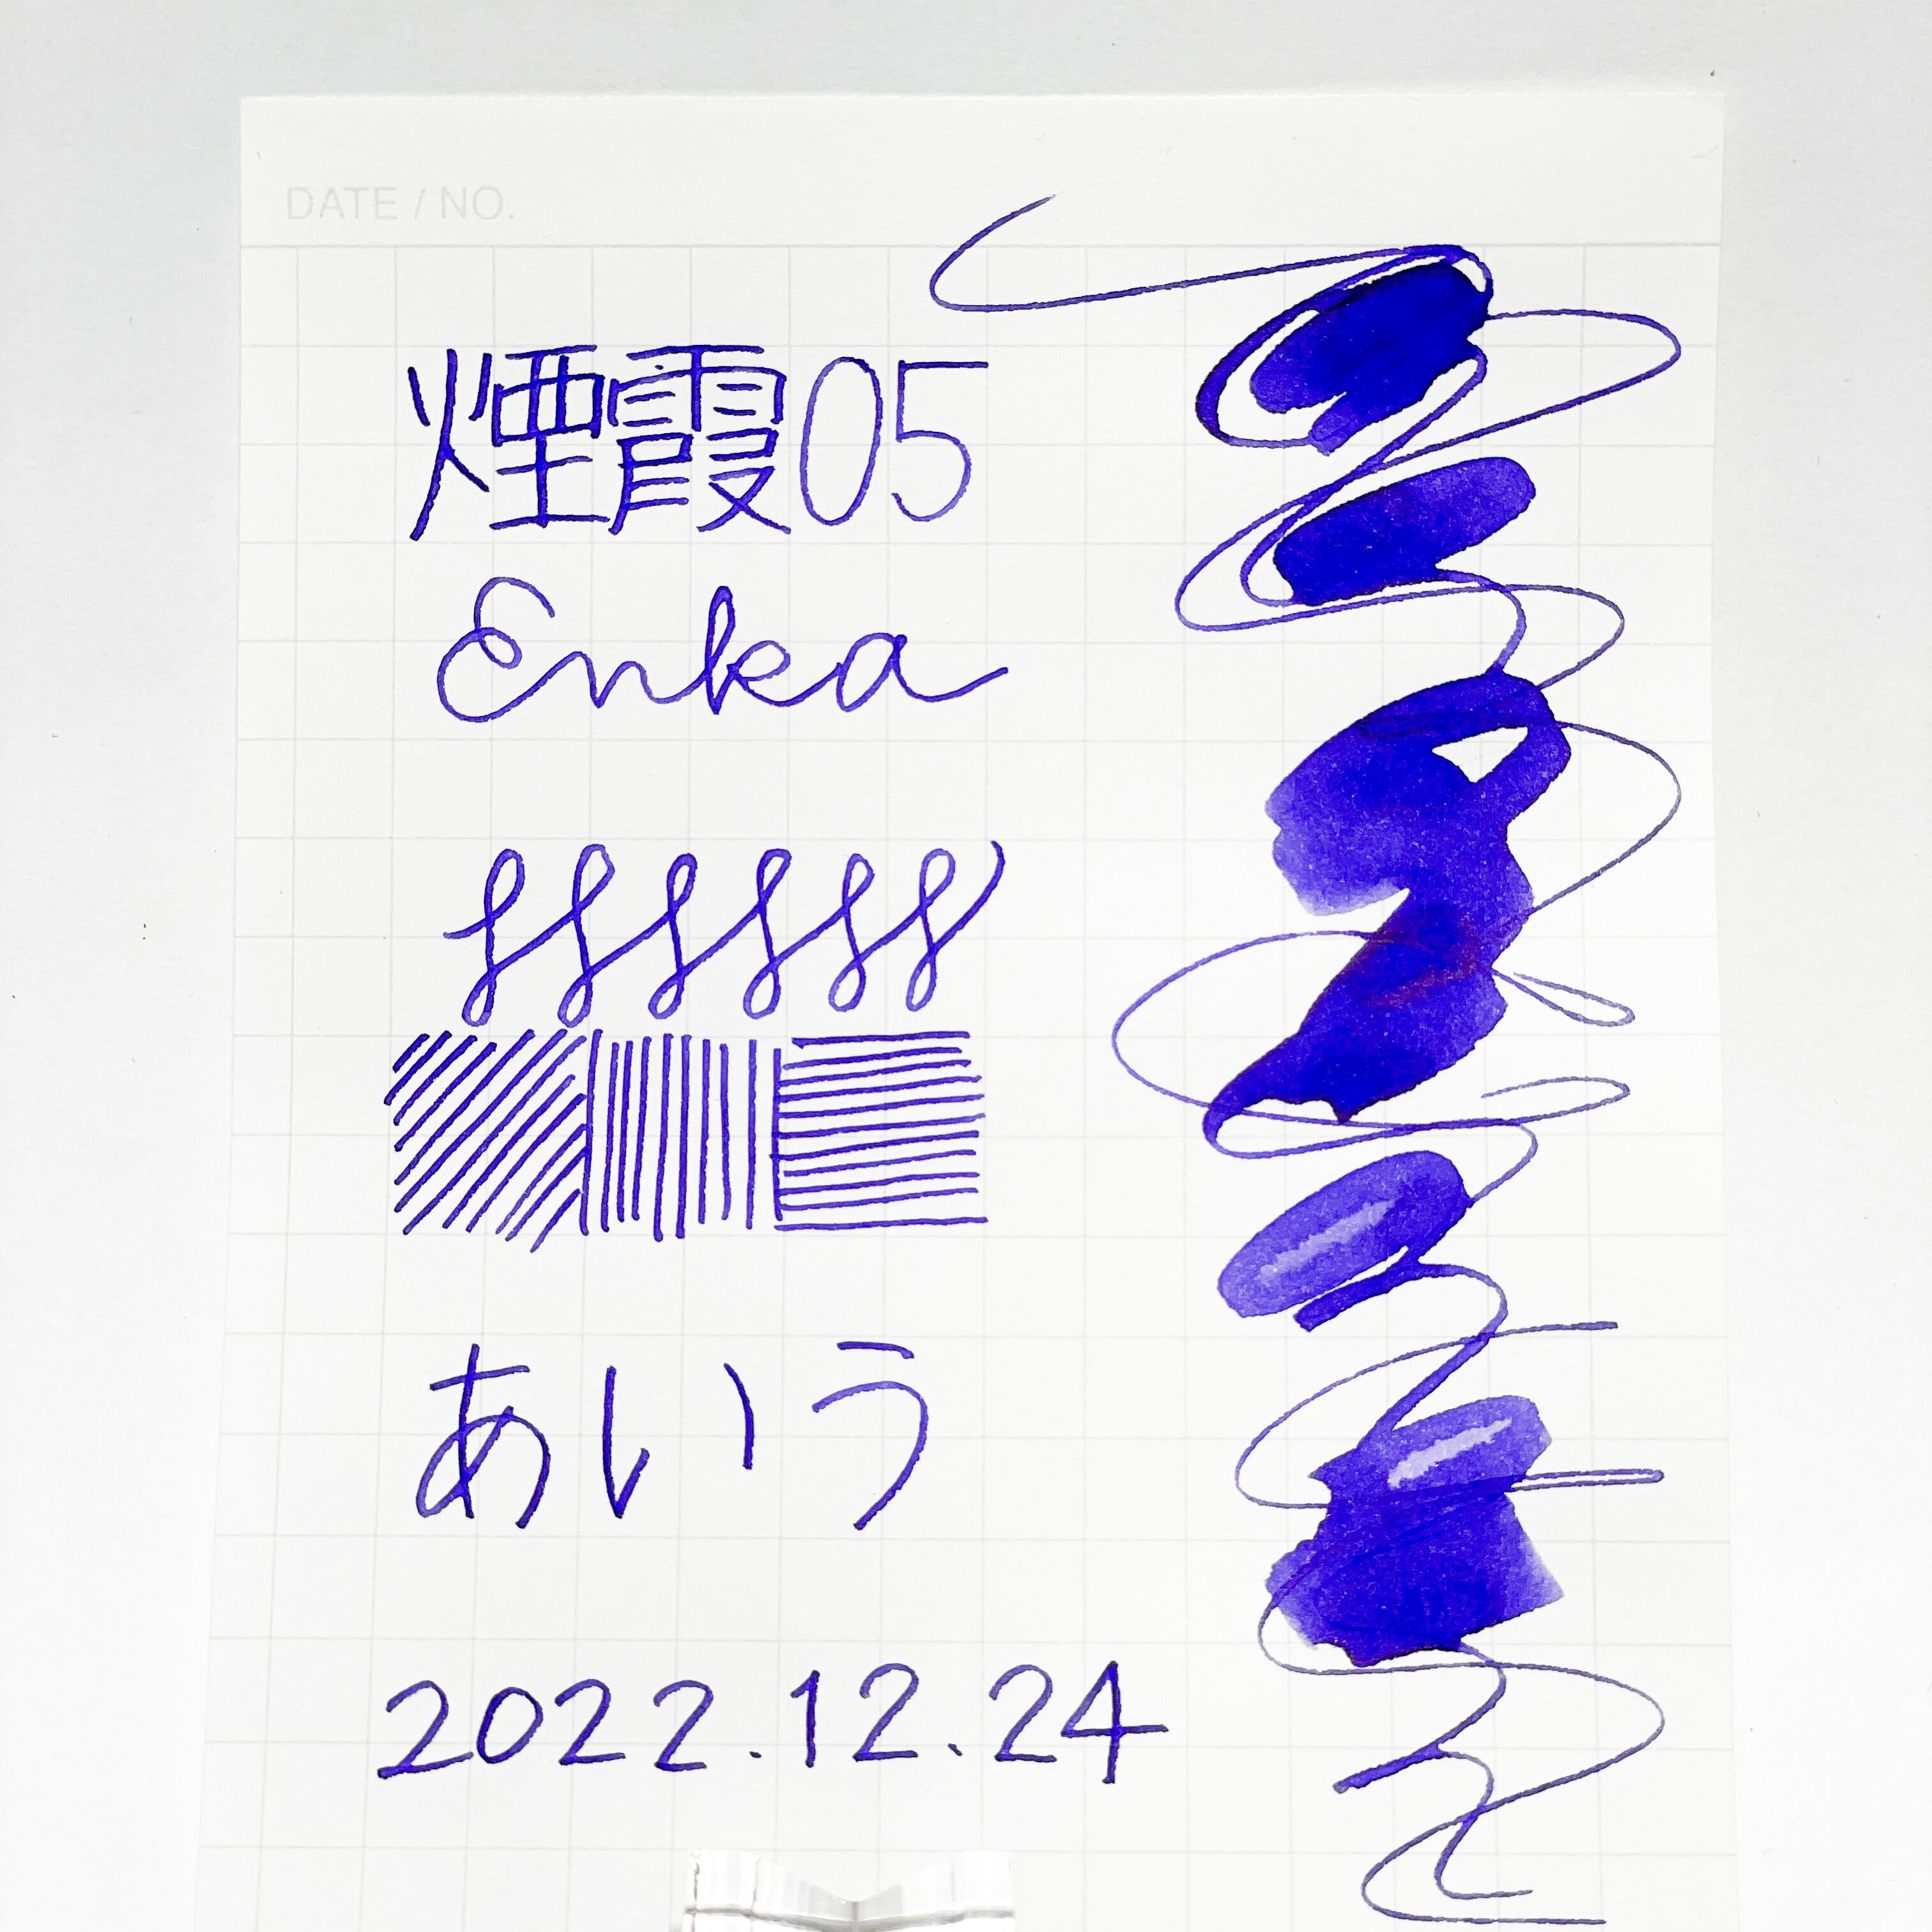 DATE / NO.
煙霞05
Enka
あいう
2022.12.24